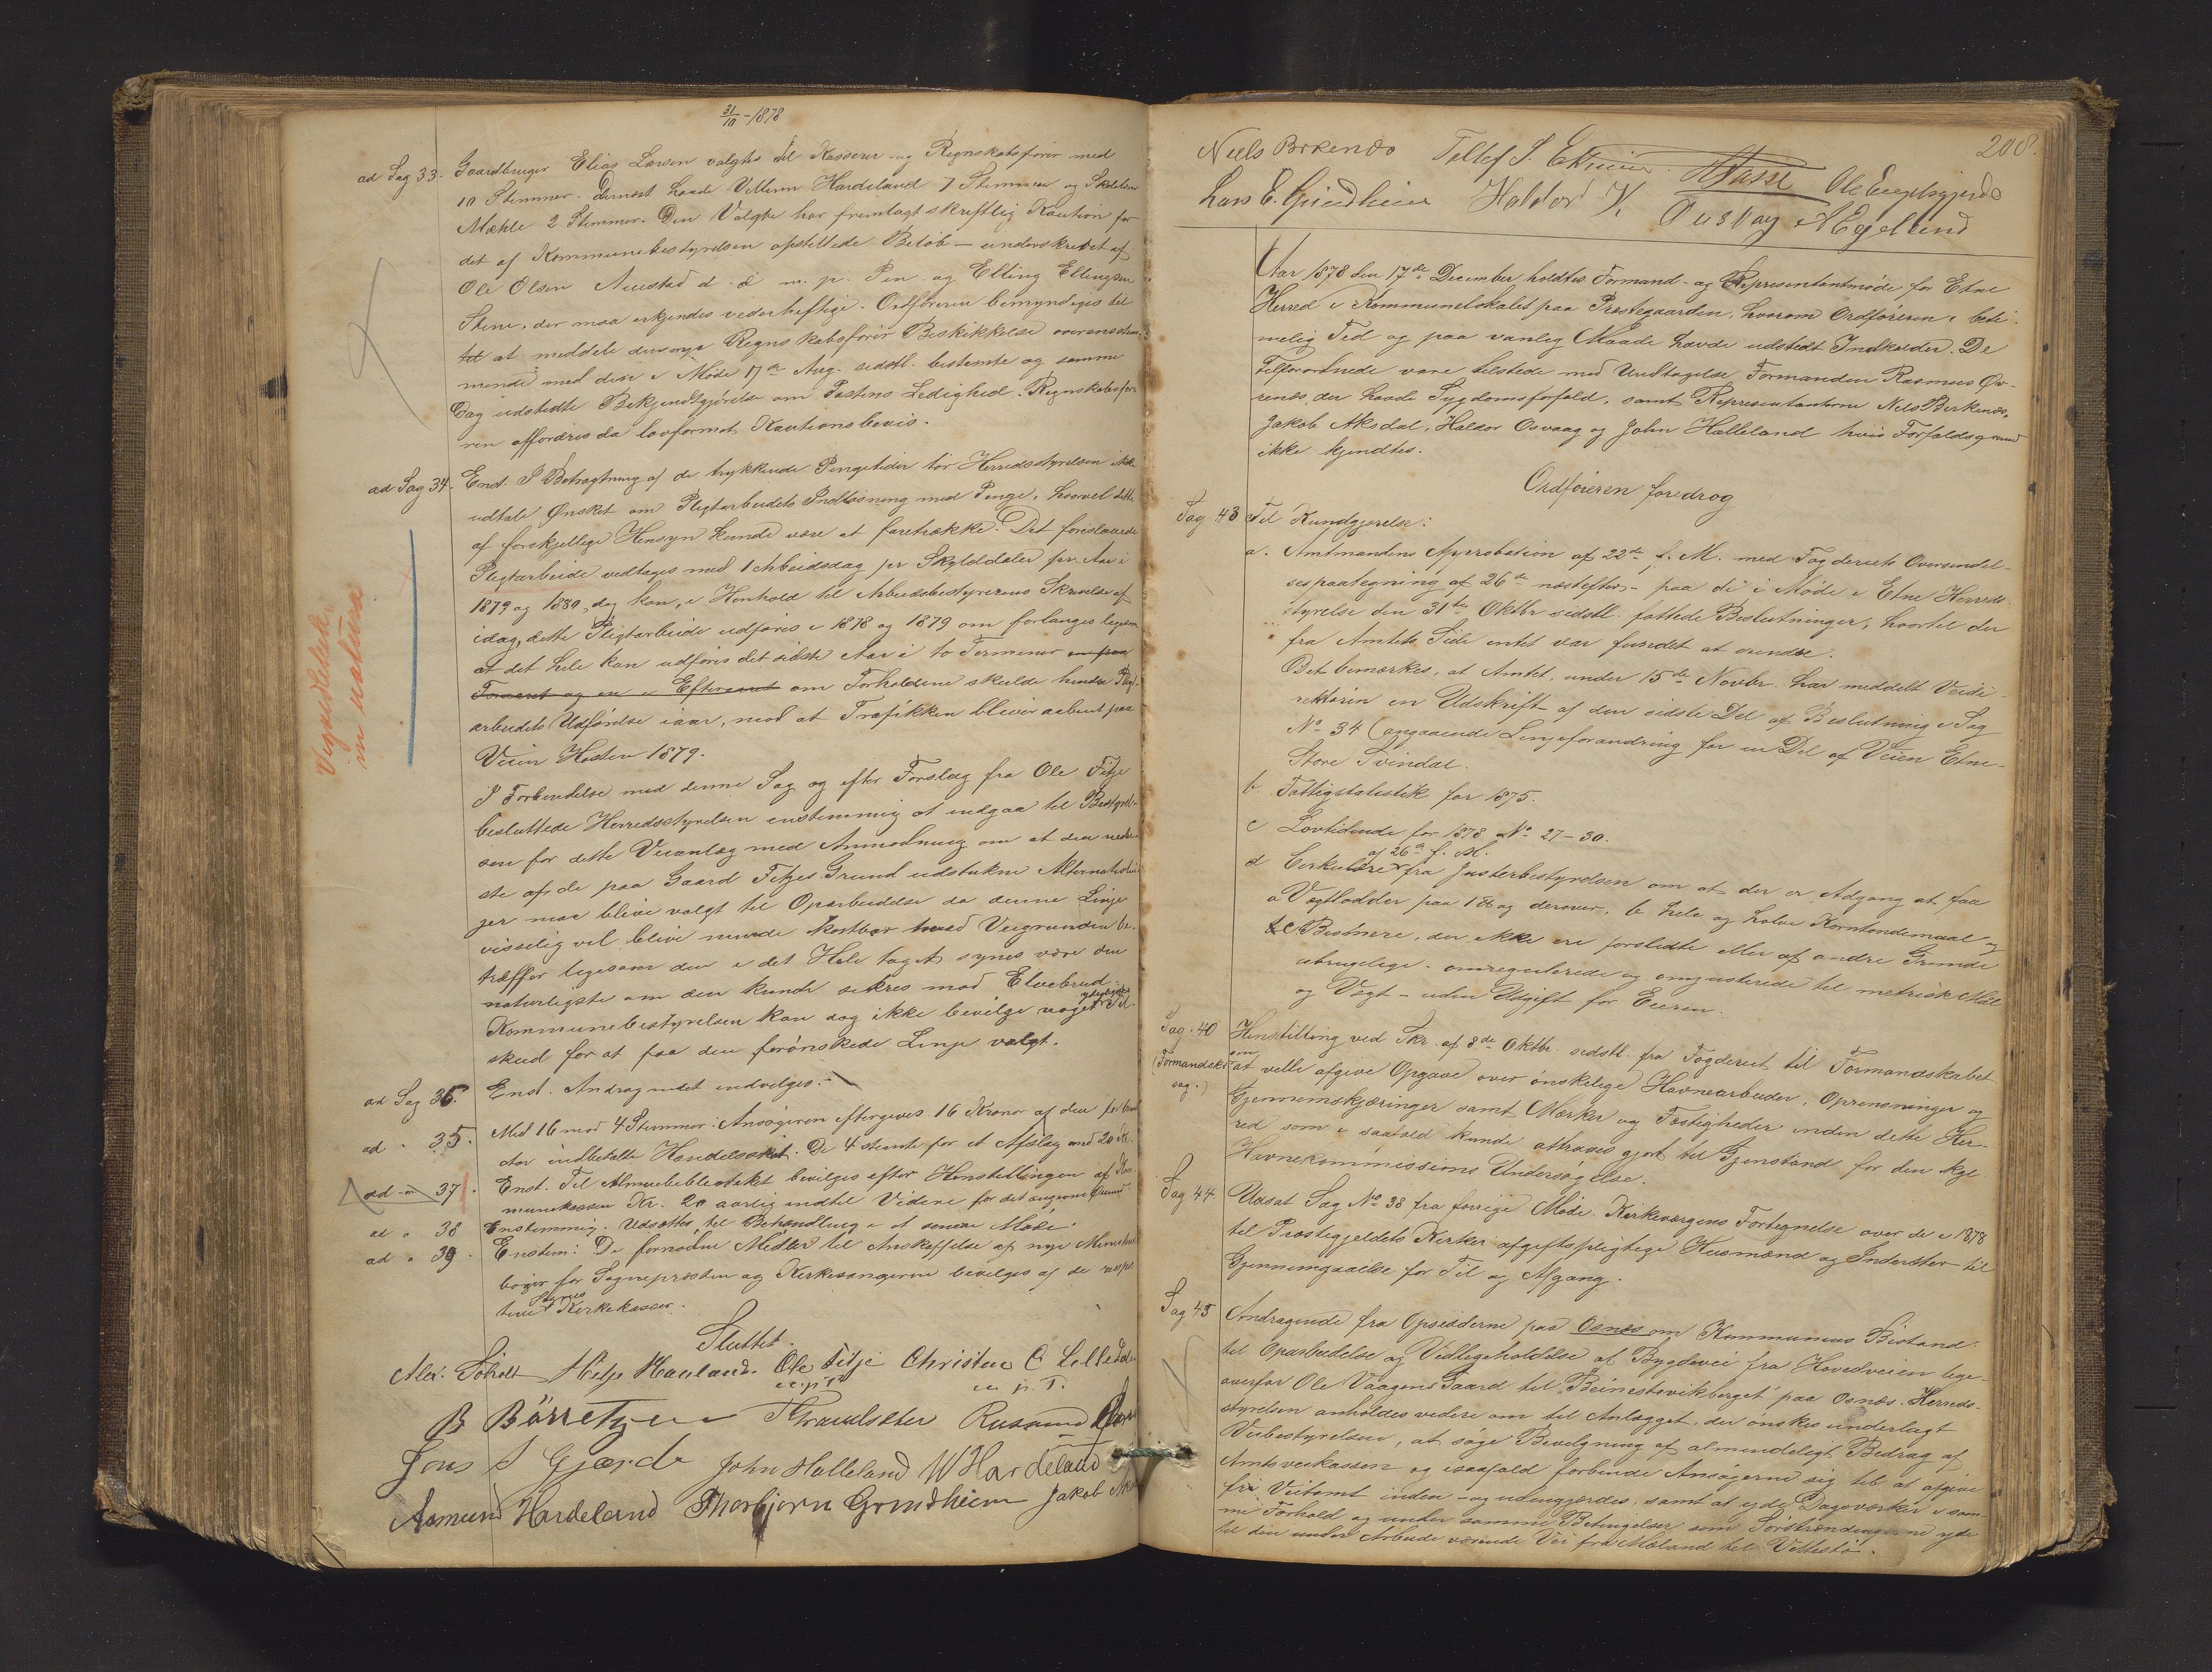 31/10 - 1878
ad Sag 33. Gaardbruger Elias Larsen valgtes til Kasserer- og Regnskabsfører med
10 Stemmer. Dernæst havde Villum Hardeland 7 Stemmer og
Mæhle 2 Stemmer. Den Valgte har fremlagt skriftlig Kaution for
det af Kommunebestyrelsen opstillede Beløb – underskrevet af
Ole Olsen d. æ m. p. Pen og Elling Ellingsen
Stene, der maa erkjendes vederheftige. Ordføreren bemyndiges til
at meddele Regnskabsfører Beskikkelse overensstem-
mende med den i Møde 17de Aug. sidstl. bestemte og samme
Dag udstedte Bekjendtgjørelse om Postens Ledighed. Regnskabsfø-
ren affordres da lovformet Kautionsbevis.
ad Sag 34. Enst. I Betragtning af de trykkende Pengetider tør Herredsstyrelsen ikke
udtale Ønsket om Pligtarbeidets Indløsning med Penge, hvorvel dette
af forskjellige Hensyn kunde være at foretrække. Det foreslaaede
Pligtarbeide vedtages med 1 Arbeidsdag pr Skylddaler pr. Aar i
1879 og 1880, dog kan, i Henhold til Arbeidsbestyrerens Skrivelse af
idag, dette Pligtarbeide udføres i 1878 og 1879 om forlanges ligesom
at det hele kan udføres det sidste Aar i to Terminer en paa
Foraaret og en i Efteraaret om Forholdene skulde hindre Pligt-
arbeidets Udførelse iaar, mod at Trafikken bliver aabent paa
Veien Høsten 1879.
Veivedlikeh.
in natura
I Forbindelse med denne Sag og efter Forslag fra Ole Fitje
besluttede Herredsstyrelsen enstemmig at indgaa til Bestyrel-
sen for dette Veianlæg med Anmodning om at den neder-
ste af de paa Gaard Fitjes Grund udstukne Alternativlin-
jer maa blive valgt til Oparbeidelse da denne Linje
visselig vil blive mindre kostbar hvad Veigrunden be-
træffer ligesom den i det Hele taget synes være den
naturligste om den kunde sikres mod Elvebrud.
Kommunebestyrelsen kan dog ikke bevilge noget yderligere Til-
skud for at faa den forønskede Linje valgt.
ad Sag 36. Enst. Andragendet indvilges.
ad " 35. Med 16 mod 4 Stemmer: Ansøgeren eftergives 16 Kroner af den
indbetalte Handelsskat. De 4 stemte for et Afslag med 20 Kr.
ad " 37. Enst. Til Almuebibliotheket bevilges efter Henstillingen af Kom-
munekassen Kr. 20 aarlig indtil Videre for det angivne Øiemed
ad " 38 Enstemmig. Udsættes til Behandling i et senere Møde.
ad " 39. Enstem: De fornødne Midler til Anskaffelse af nye
bøger for Sognepræsten og Kirkesangerne bevilges af de respek-
tive Sognes Kirkekasser.
Sluttet.
Alex. Helje Hauland Ole Fitje Christen C
m. p. P. m. p. P.
B Børretzen Rasmus
Jens S Gjærde John Halleland W Hardeland
Asmund Hardeland Thorbjørn Grindheim Jakob
208.
Niels Birkenes Tollef S. Etnier Ole Engelsgjerd
Lars E. Grindheim Haldor
Aar 1878 den 17de December holdtes Formand- og Representantmøde for Etne
Herred i Kommunelokalet paa Præstegaarden, hvorom Ordføreren i beti-
melig Tid og paa vanlig Maade havde udstedt Indkaldr. De
Tilforordnede vare tilstede med Undtagelse Formanden Rasmus Øv-
renes, der havde Sygdomsforfald, samt Representanterne Nels Birkenes,
Jakob Aksdal, Haldor Osvaag og John Halleland hvis Forfaldsgrund
ikke kjendtes.
Ordføreren foredrog
Sag 43 Til Kundgjørelse:
a. Amtmandens Approbation af 22de f. M. med Fogderiets Oversendel-
sespaategning af 26de næstefter – paa de i Møde i Etne Herreds-
styrelse den 31te Oktbr sidstl. fattede Beslutninger, hvortil der
fra Amtets Side intet var fundet at erindre.
Det bemærkes, at Amtet, under 15de Novbr. har meddelt Veidi-
rektøren en Udskrift af den sidste Del af Beslutning i Sag
No 34 (angaaende Linjeforandring for en Del af Veien Etne-
Store Svindal.
b Fattigstatistik for 1875.
c Lovtidende for 1878 No 27 – 30.
d Cirkulære af 26de f. M. fra Justerbestyrelsen om at der er Adgang at faa
a Vægtlodder paa 1 ℔ og derover, b hele og halve Korntøndemaal og
c Bismere, der ikke ere forslidte eller af andre Grunde
ubrugelige – omregulerede og omjusterede til metrisk Maal
og Vægt – uden Udgift for Eieren.
Sag. 40 (Formandsk. sag.) Henstilling ved Skr. af 8de Oktbr. sidstl. fra Fogderiet til Formandskabet
om at ville afgive Opgave over ønskelige Havnearbeider, Oprensninger og
Gjennemskjæringer samt Mærker og Fæstigheder inden dette Her-
red som i saafald kunde attraaes gjort til Gjenstand for den kgl.
Havnekommissions Undersøgelse.
Sag 44 Udsat Sag No 38 fra forrige Møde. Kirkeværgens Fortegnelse over de i 1878
til Præstegjeldets Kirker afgiftspligtige Husmænd og Inderster til
Gjennemgaaelse for Til og Afgang.
Sag 45 Andragende fra Opsidderne paa Osnes om Kommunens Bistand
til Oparbeidelse og Vedligeholdelse af Bygdevei fra Hovedveien lige
overfor Ole Vaagens Gaard til "Beinestøvikberget" paa Osnes. Herreds-
styrelsen anholdes videre om til Anlægget, der ønskes underlagt
Veibestyrelsen, at søge Bevilgning af almindeligt Bedrag af
Amtsveikassen og isaafald forbinde Ansøgerne sig til at afgive
fri Veitomt inden- og udengjerdes, samt at yde Dagsværker i sam-
me Forhold og under samme Betingelser som Sørstrændingerne yde
til den under Arbeide værende Vei fra Mæland til Vettestø.